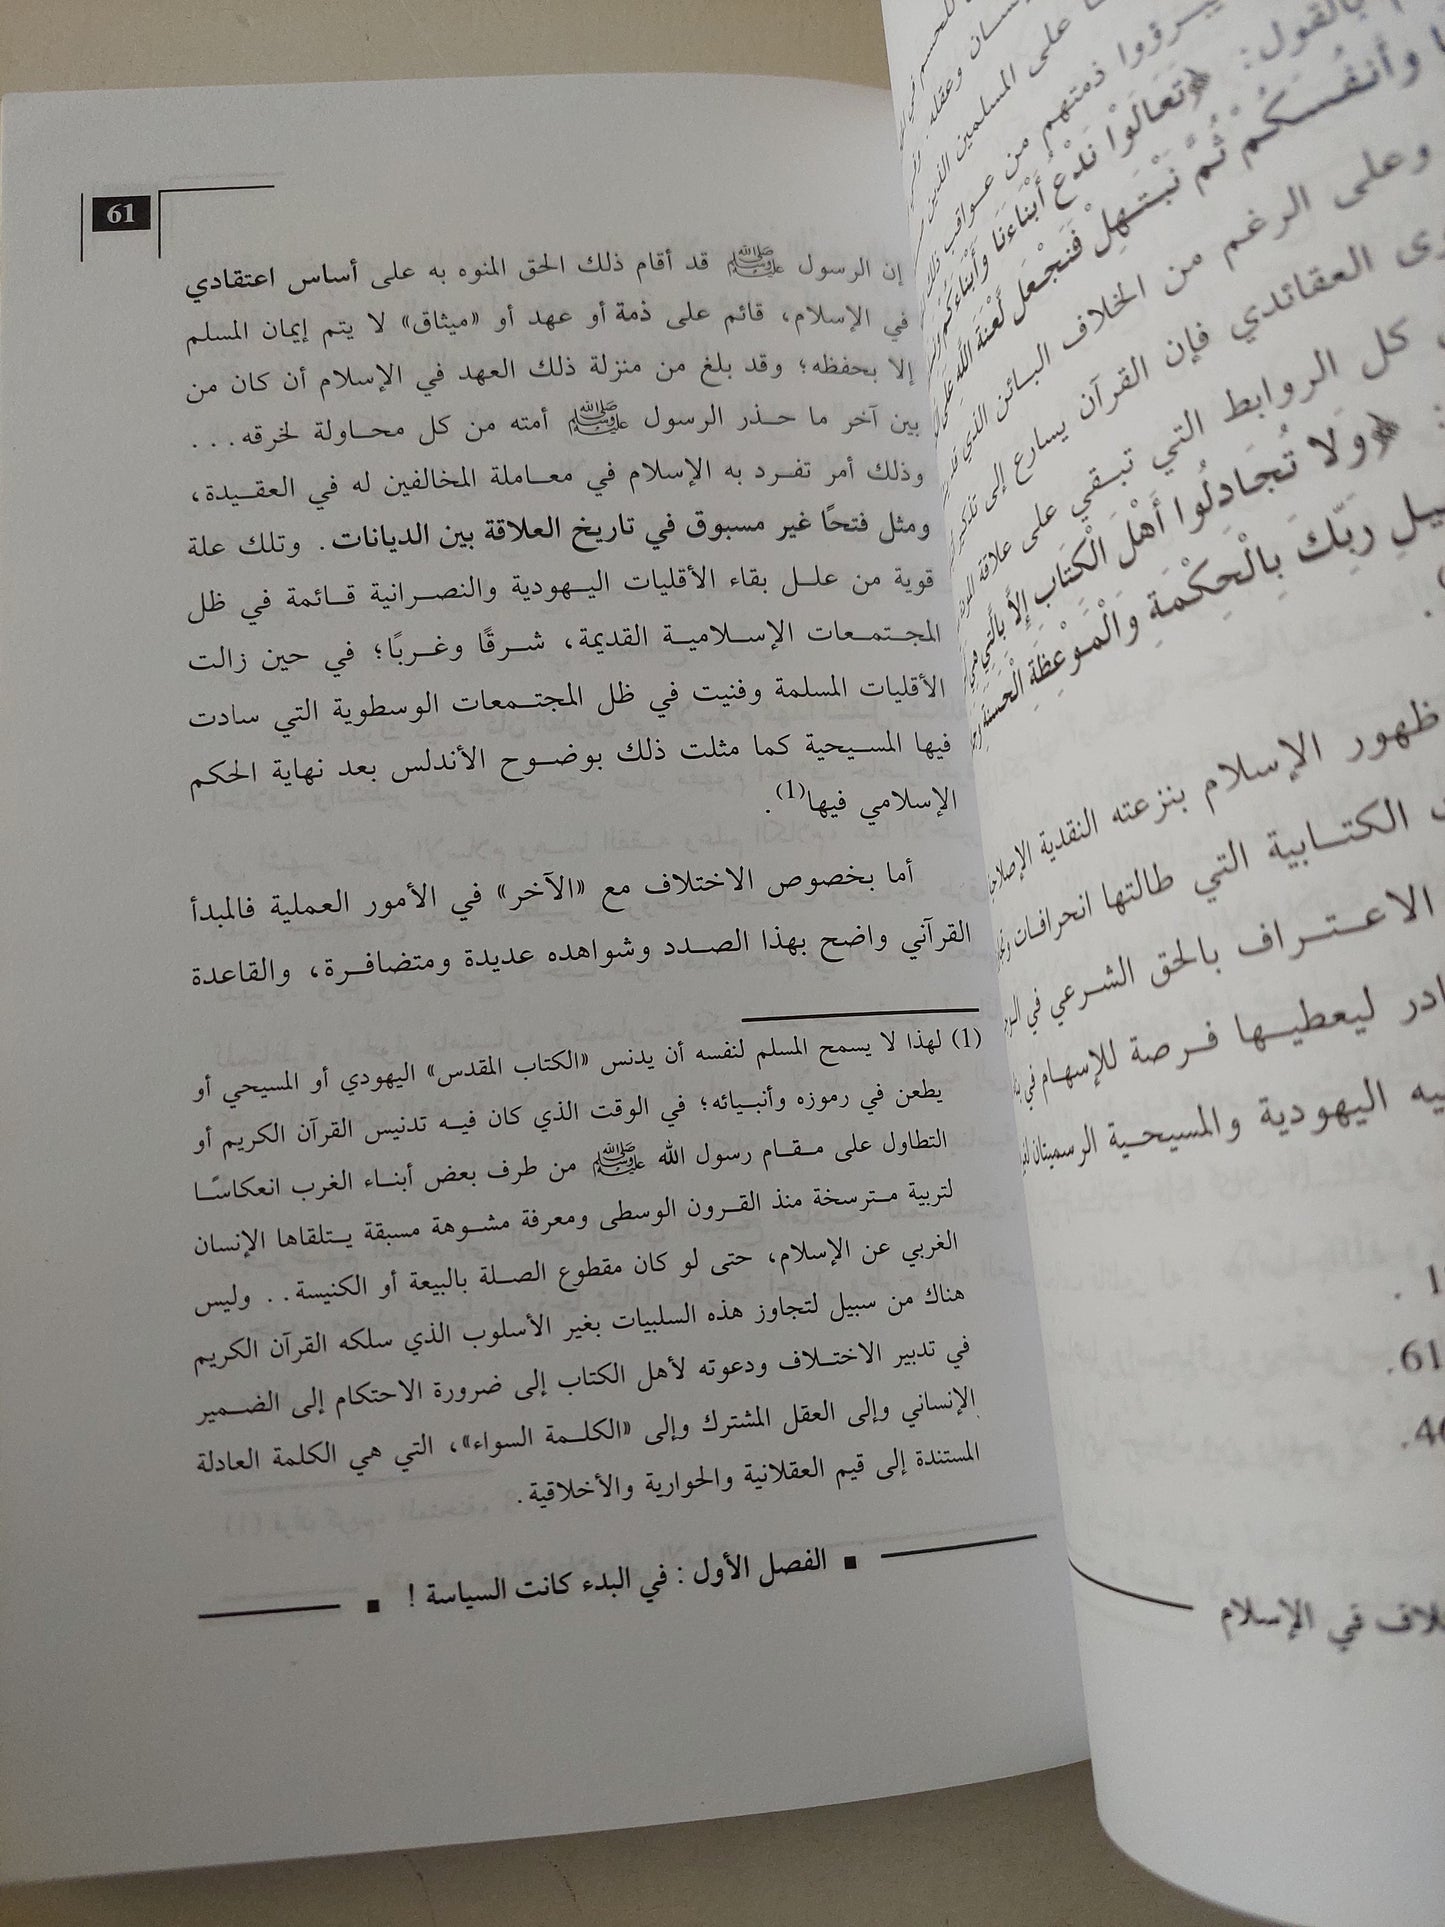 للحسم في
على المسلمين الذين
يبرؤوا ذمتهم من عواقب
بالقول: ﴿تَعَالَوْا نَدْعُ أَبْنَاءَنَا وَأَبْنَاءَكُمْ
وَأَنفُسَكُمْ ثُمَّ نَبْتَهِلْ فَنَجْعَل لَّعْنَةَ اللَّهِ عَلَى
وعلى الرغم من الخلاف البائن الذي
العقائدي فإن القرآن يسارع إلى
كل الروابط التي تبقي على علاقة
: ﴿وَلَا تُجَادِلُوا أَهْلَ الْكِتَابِ إِلاَّ بِالَّتِي هِيَ
رَبِّكَ بِالْحِكْمَةِ وَالْمَوْعِظَةِ الْحَسَنَةِ
ظهور الإسلام بنزعته النقدية
الكتابية التي طالتها انحرافات
الاعتراف بالحق الشرعي في
ليعطيها فرصة للإسهام في
اليهودية والمسيحية الرسميتان
61.
في الإسلام
61
إن الرسول ﷺ قد أقام ذلك الحق المنوه به على أساس اعتقادي
في الإسلام، قائم على ذمة أو عهد أو «ميثاق» لا يتم إيمان المسلم
إلا بحفظه؛ وقد بلغ من منزلة ذلك العهد في الإسلام أن كان من
بين آخر ما حذر الرسول ﷺ أمته من كل محاولة لخرقه...
وذلك أمر تفرد به الإسلام في معاملة المخالفين له في العقيدة،
ومثل فتحًا غير مسبوق في تاريخ العلاقة بين الديانات. وتلك علة
قوية من علل بقاء الأقليات اليهودية والنصرانية قائمة في ظل
المجتمعات الإسلامية القديمة، شرقًا وغربًا؛ في حين زالت
الأقليات المسلمة وفنيت في ظل المجتمعات الوسطوية التي سادت
فيها المسيحية كما مثلت ذلك بوضوح الأندلس بعد نهاية الحكم
الإسلامي فيها(1).
أما بخصوص الاختلاف مع «الآخر» في الأمور العملية فالمبدأ
القرآني واضح بهذا الصدد وشواهده عديدة ومتضافرة، والقاعدة
(1) لهذا لا يسمح المسلم لنفسه أن يدنس «الكتاب المقدس» اليهودي أو المسيحي أو
يطعن في رموزه وأنبيائه؛ في الوقت الذي كان فيه تدنيس القرآن الكريم أو
التطاول على مقام رسول الله ﷺ من طرف بعض أبناء الغرب انعكاسًا
لتربية مترسخة منذ القرون الوسطى ومعرفة مشوهة مسبقة يتلقاها الإنسان
الغربي عن الإسلام، حتى لو كان مقطوع الصلة بالبيعة أو الكنيسة.. وليس
هناك من سبيل لتجاوز هذه السلبيات بغير الأسلوب الذي سلكه القرآن الكريم
في تدبير الاختلاف ودعوته لأهل الكتاب إلى ضرورة الاحتكام إلى الضمير
الإنساني وإلى العقل المشترك وإلى «الكلمة السواء»، التي هي الكلمة العادلة
المستندة إلى قيم العقلانية والحوارية والأخلاقية.
■ الفصل الأول : في البدء كانت السياسة ! ■